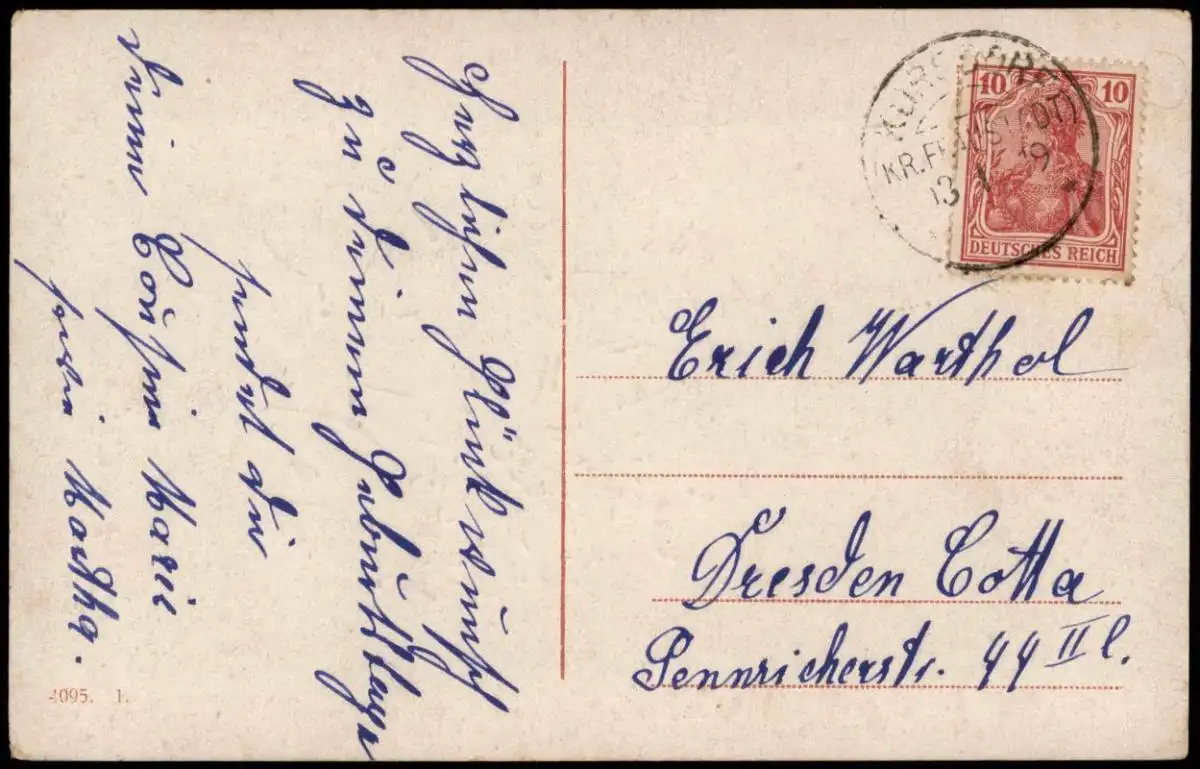 Herzlichen Glückwunsch
zu deinem Geburtstage
sendet dir
deine Cousine Marie
sowie Martha.
4095. 1.
KURSDORF
(KR. FRAUSTADT)
13 1 19
10 10
DEUTSCHES REICH
Erich Warthol
Dresden Cotta
Pennricherstr. 44 II l.